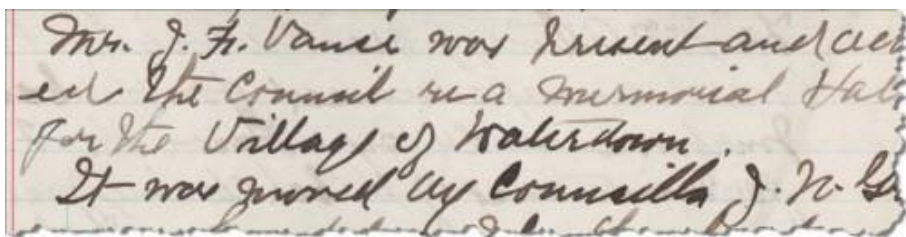 Mr. J. F. Vance was present and
ed the Council re a Memorial
for the Village of Waterdown.
It was moved by Councillr J. N.